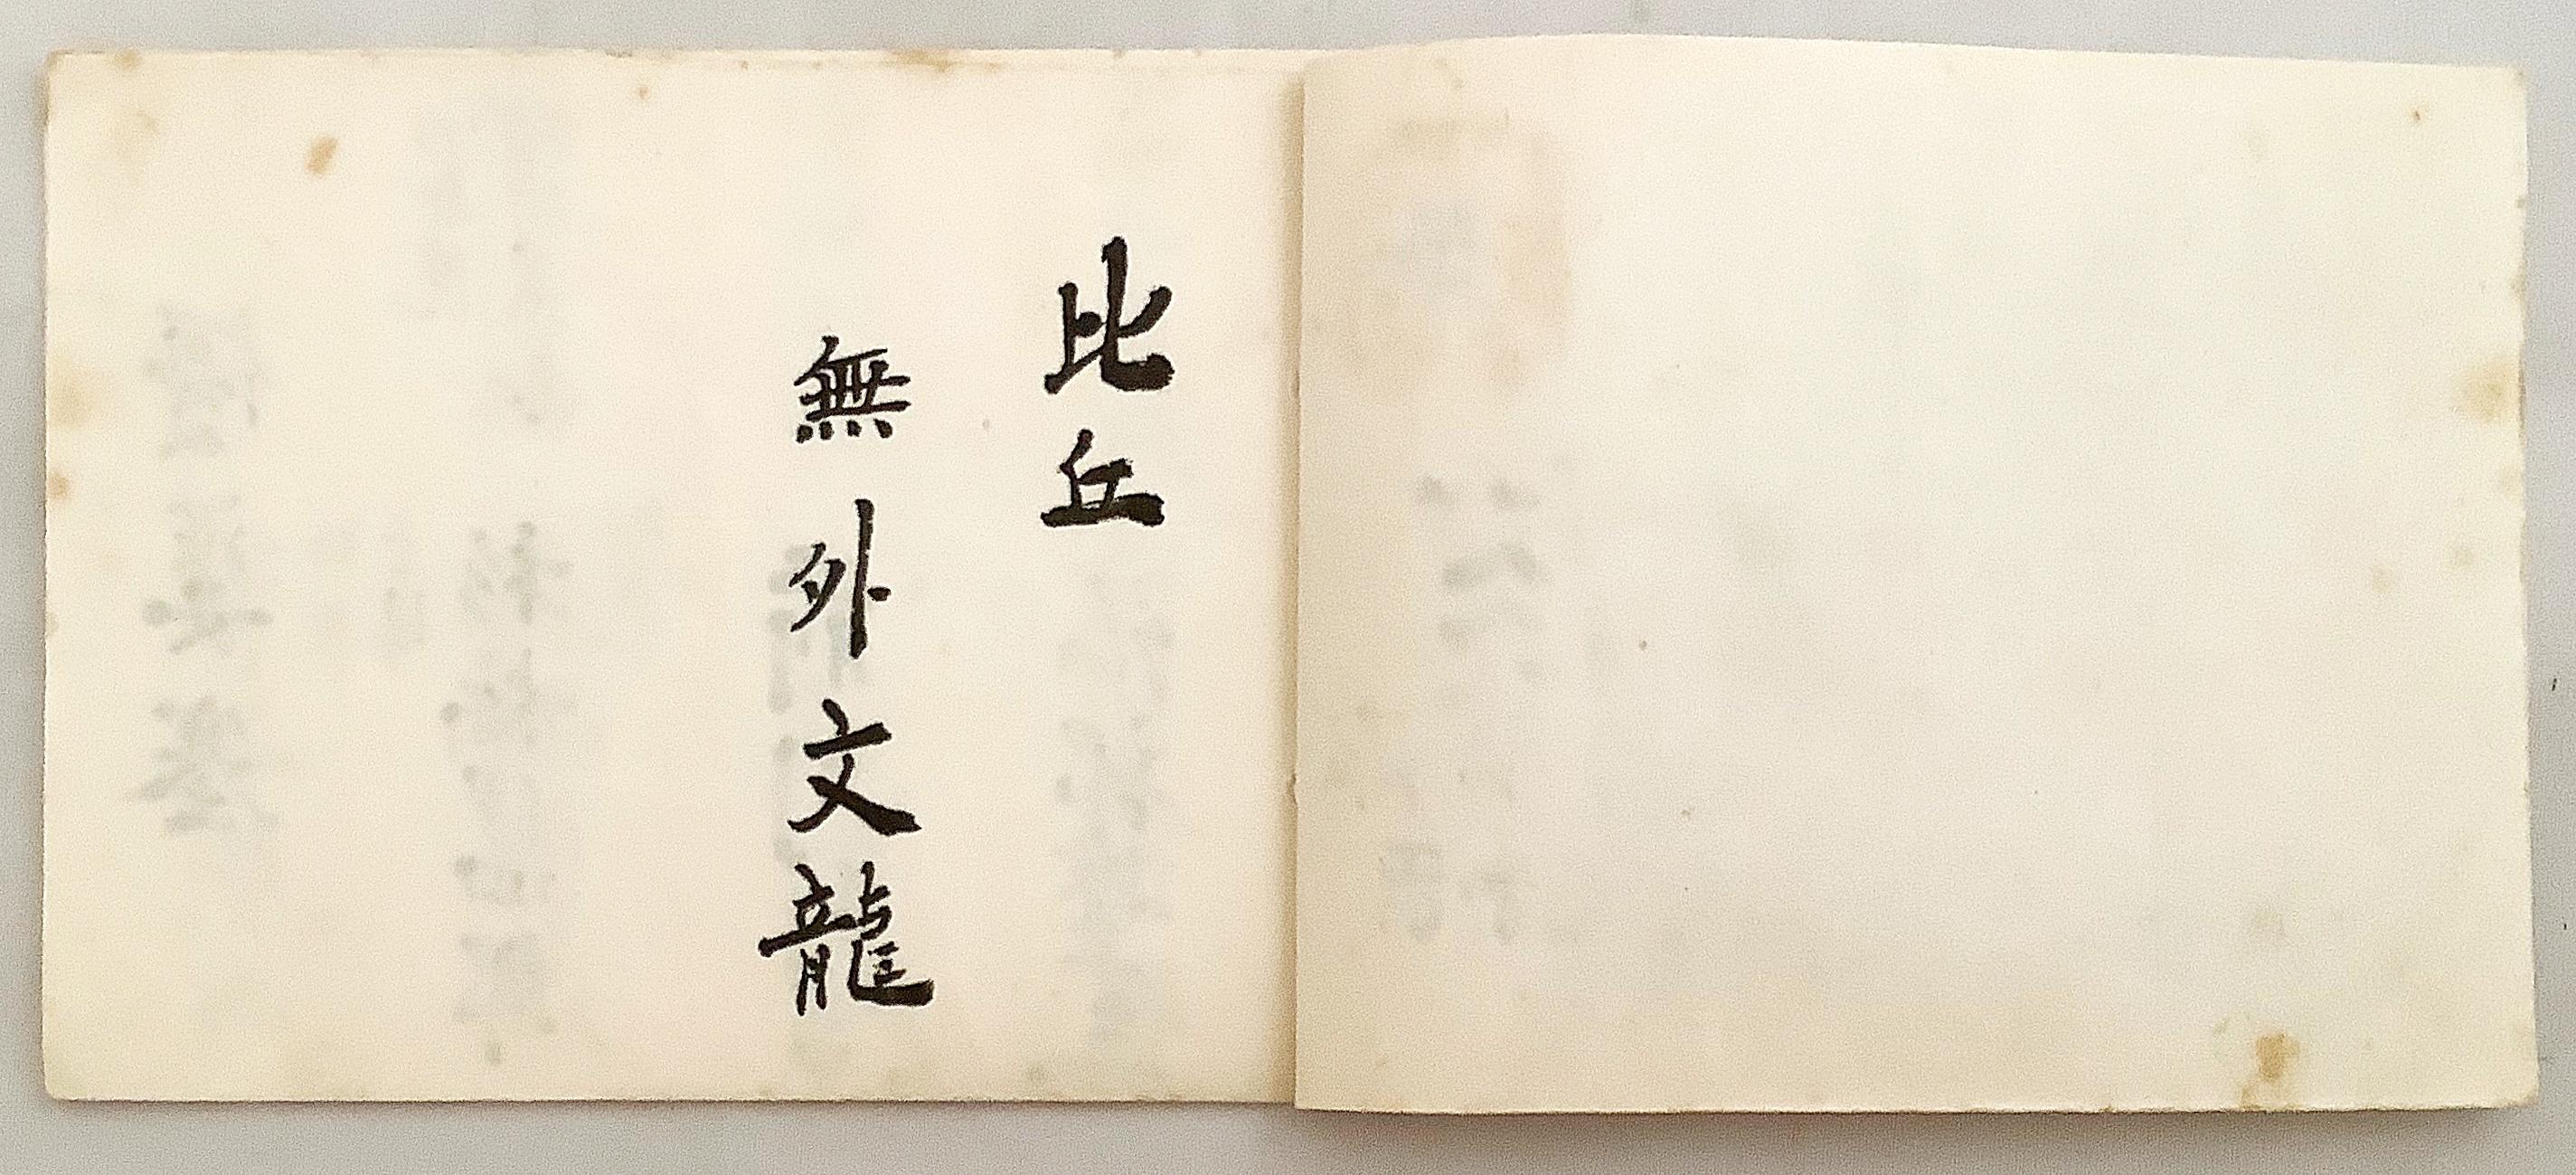 比丘
無外文龍